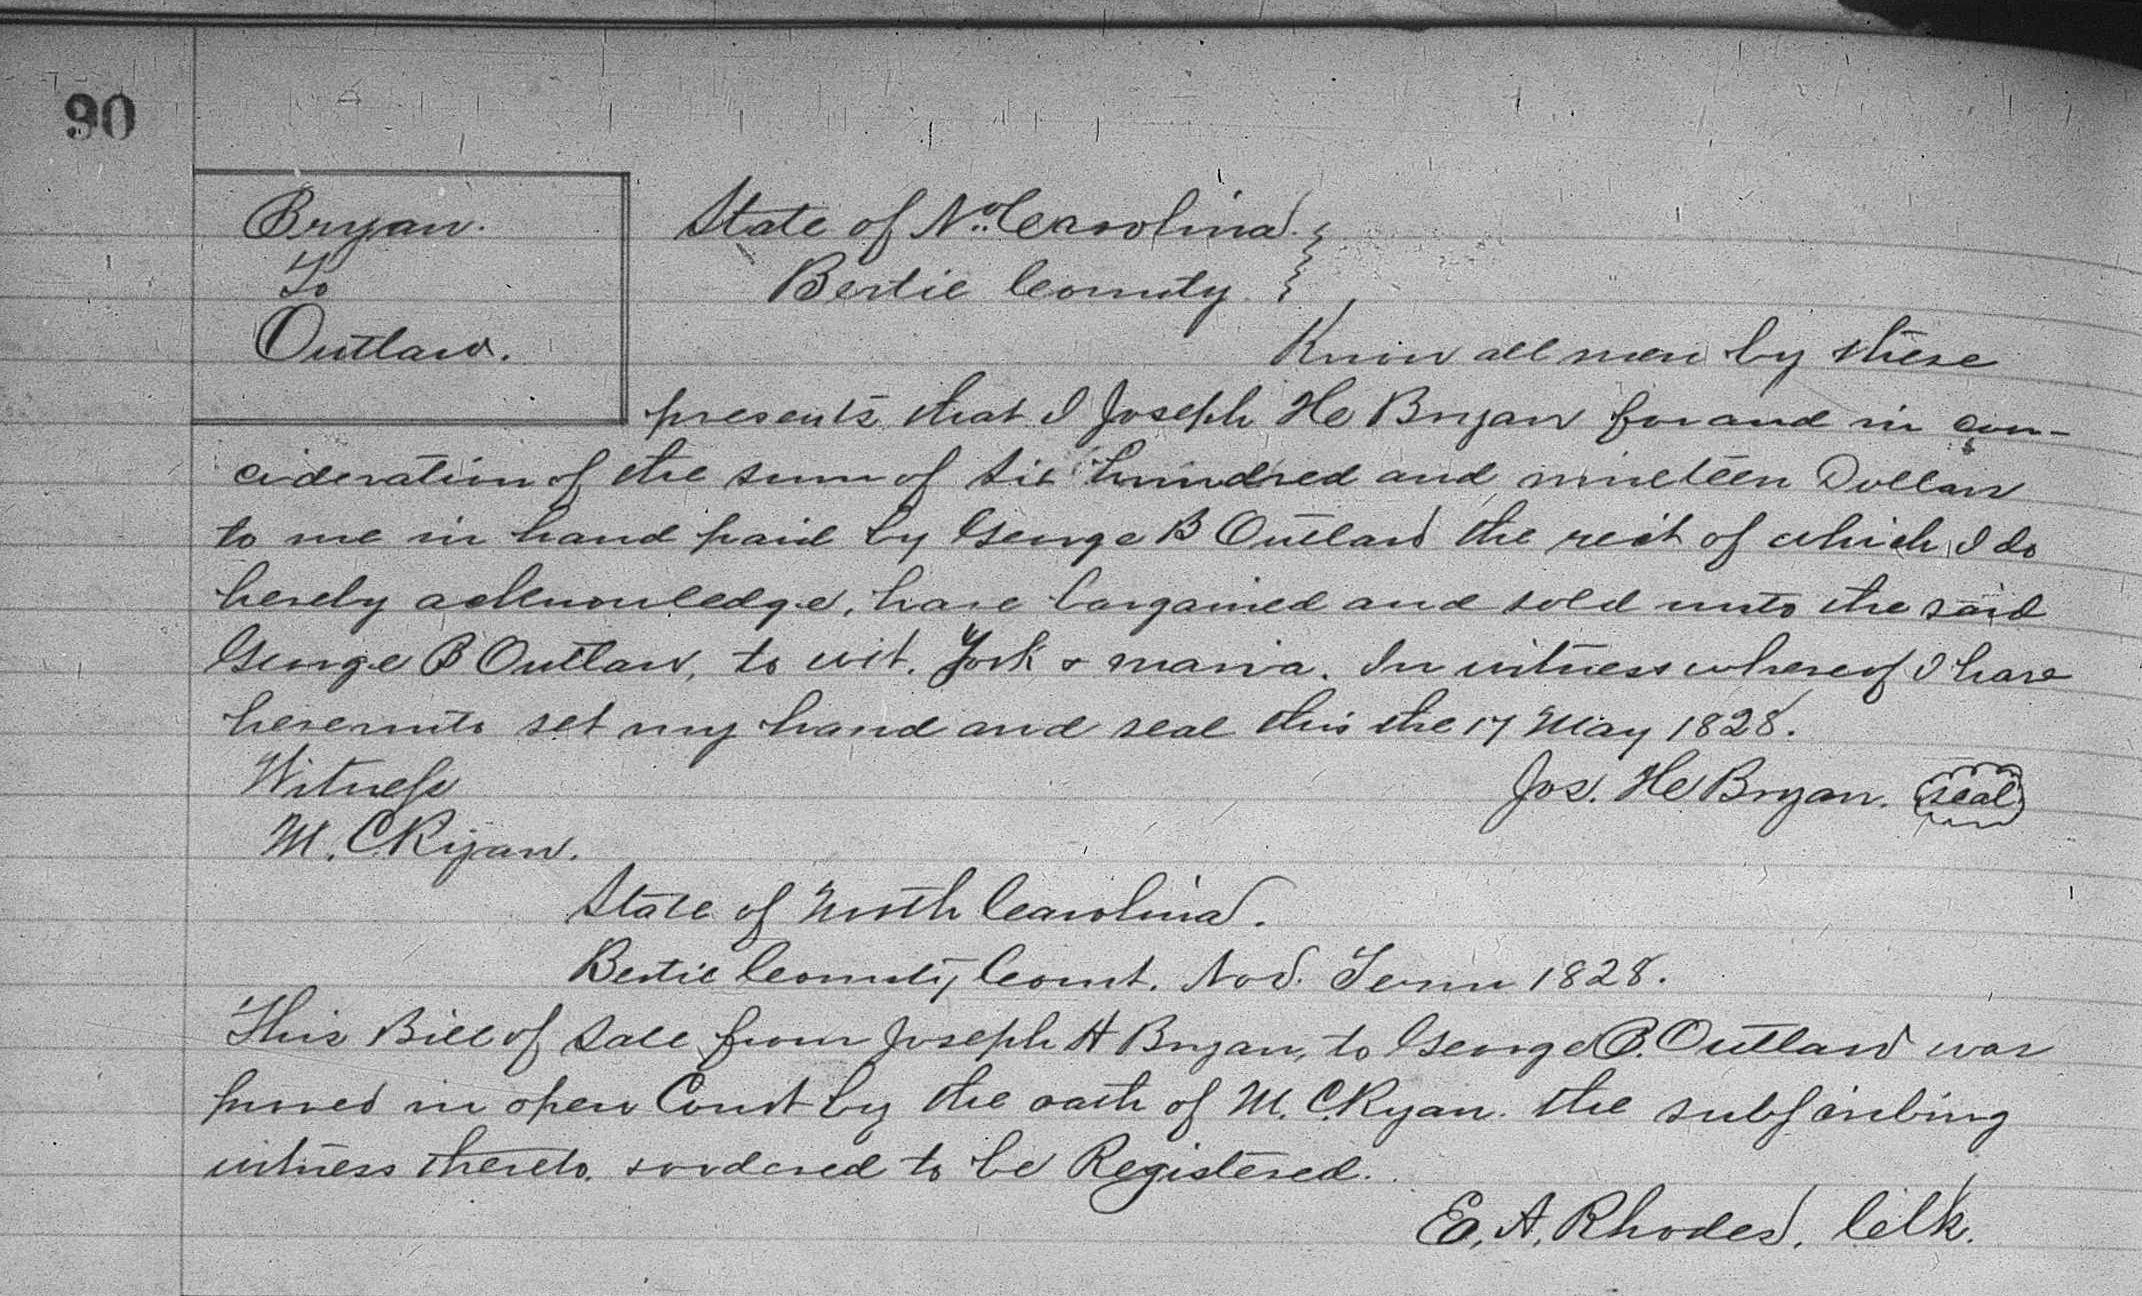 90
Bryan.
To
Outlaw.
State of No. Carolina.
Bertie County.
Know all men by these
presents that I Joseph H Bryan for and in con-
cideration of the sum of six hundred and nineteen Dollars
to me in hand paid by George B Outlaw the reit of which I do
hereby acknowledge, have bargained and sold unto the said
George B Outlaw, to wit. York & maria. In witness whereof I have
hereunto set my hand and seal this the 17 May 1828.
Witness
Jos. H Bryan. seal
M. C. Ryan.
State of North Carolina.
Bertie County Court. Nov. Term 1828.
This Bill of Sale from Joseph H Bryan, to George B. Outlaw was
proved in open Court by the oath of M. C. Ryan. the subscribing
witness thereto. & ordered to be Registered.
E. A. Rhodes, Clk.